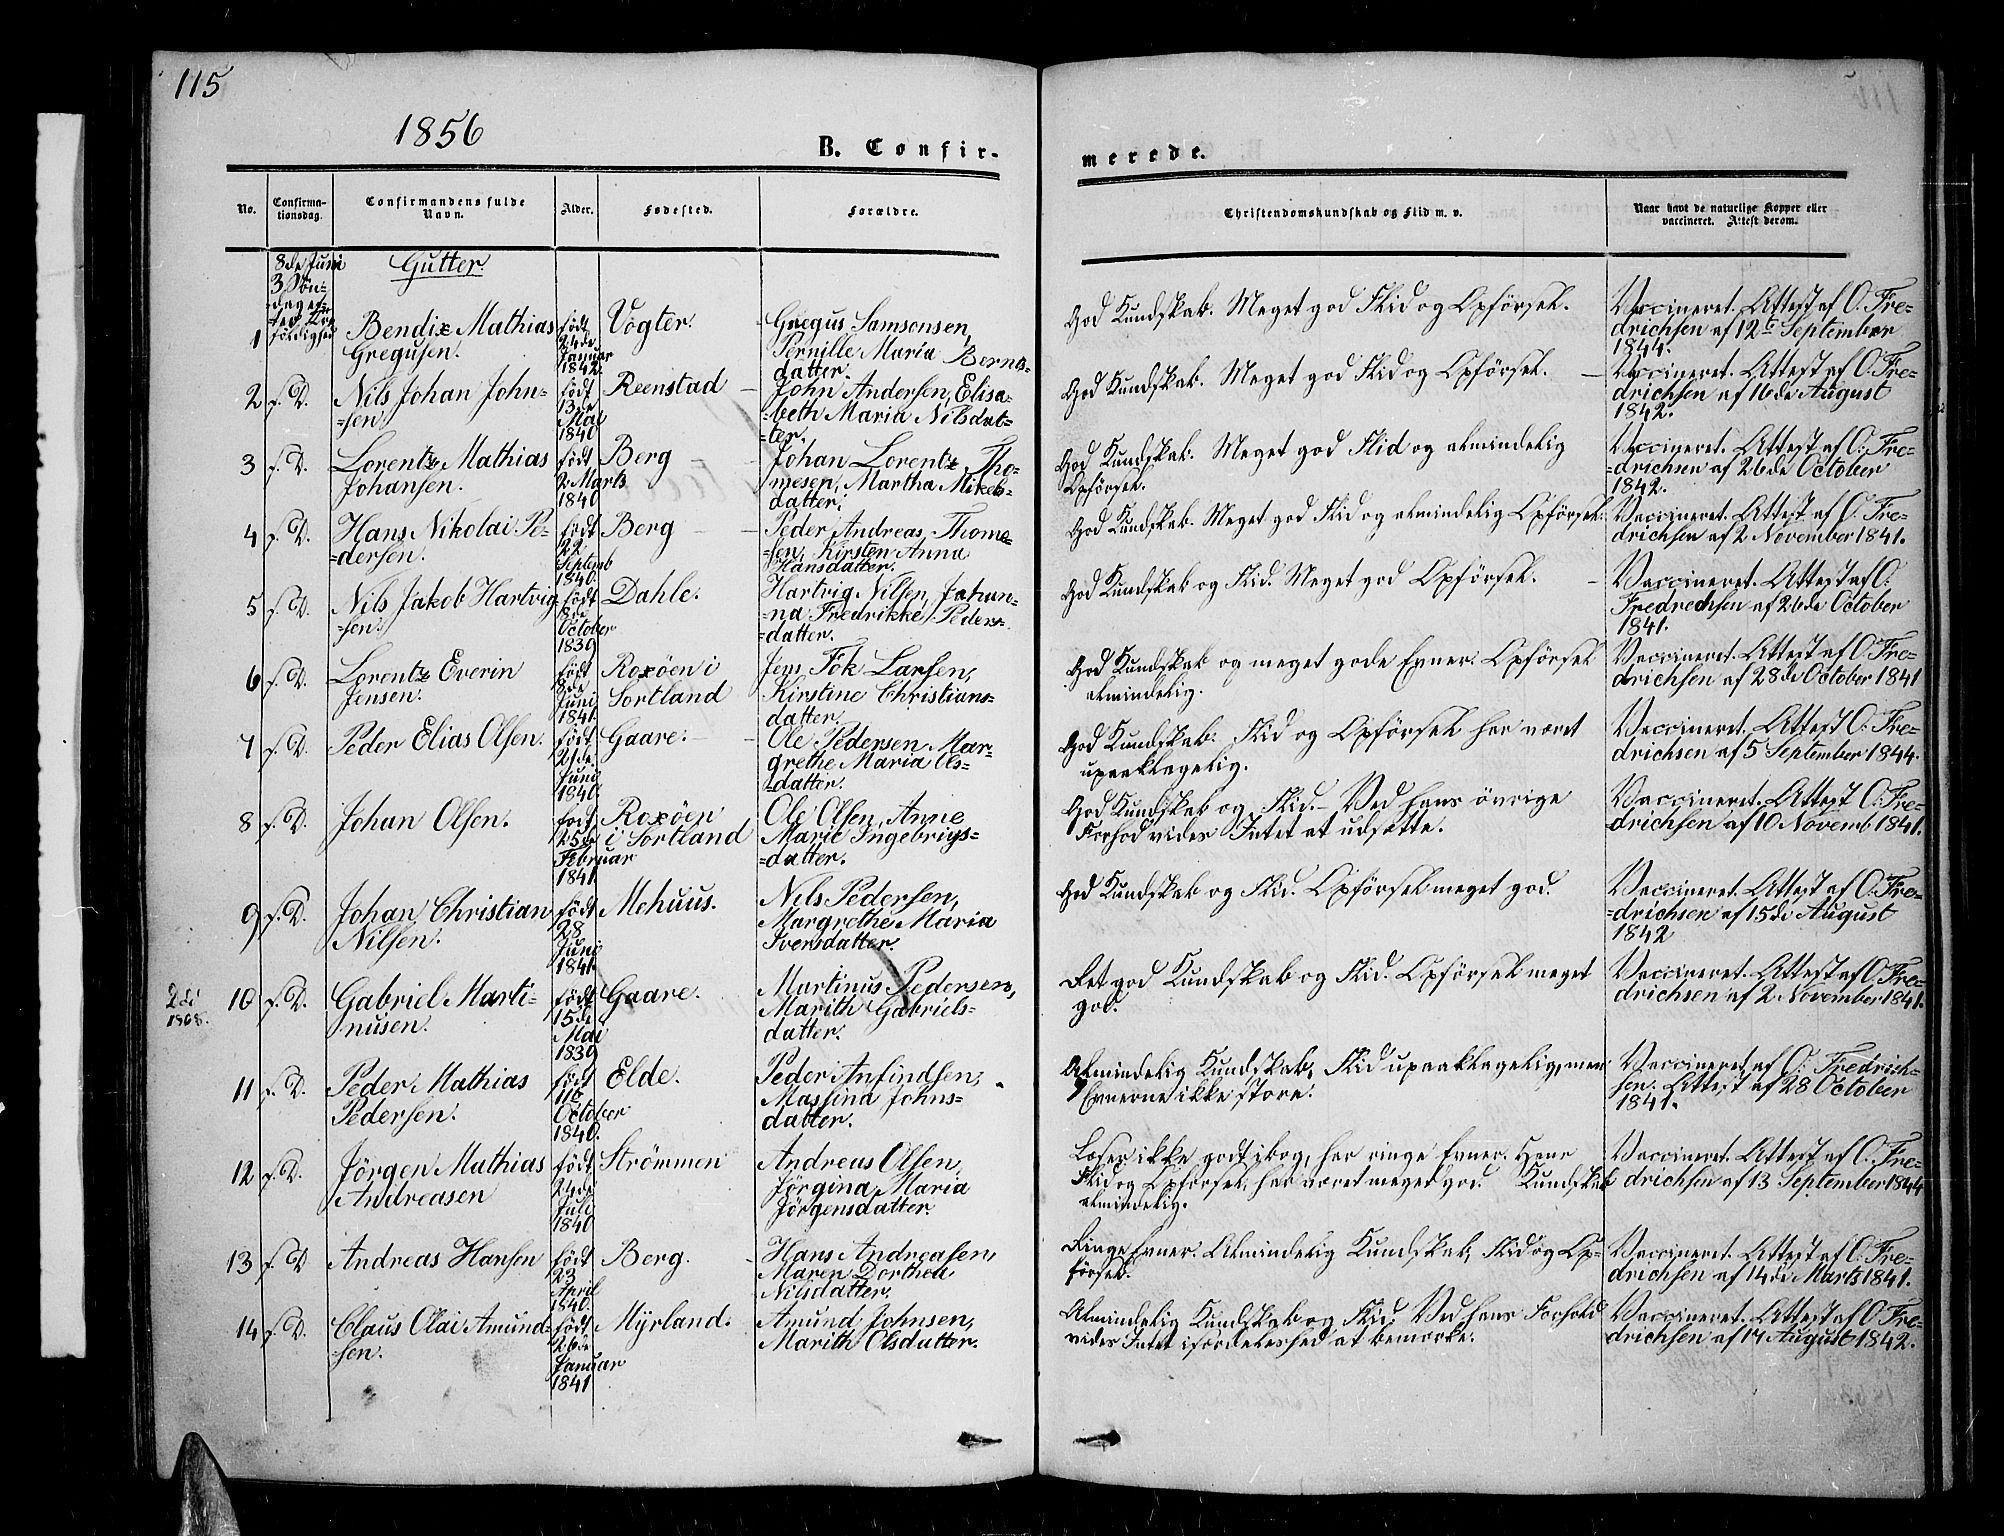 115
1856
B. Confir-
merede.
No.
Confirma-
tionsdag.
Confirmandens fulde
Navn.
Alder.
Fødested.
Forældre.
Christendomskundskab og Flid m. v.
Naar havt de naturlige Kopper eller
vaccineret. Attest derom.
8de Juni
3 Søn-
dag ef-
ter Tre-
foldighed
Gutter.
1
Bendix Mathias
Gregusen.
født
24de
Januar
1842.
Vogter.
Gregus Samsonsen,
Pernille Maria Bernts-
datter.
God Kundskab. Meget god Flid og Opførsel.
Vaccineret. Attest af O. Fre-
drichsen af 12te September
1844.
2
s. D.
Nils Johan John-
=sen.
født
13de
Mai
1840
Reenstad
John Andersen, Elisa-
=beth Maria Nilsdat-
=ter.
God Kundskab. Meget god Flid og Opførsel.
Vaccineret. Attest af O. Fre=
drichsen af 16de August
1842.
3
s. D.
Lorentz Mathias
Johansen.
født
2 Marts
1840
Berg
Johan Lorentz Tho-
mesen, Martha Mikels-
datter.
God Kundskab. Meget god Flid og almindelig
Opførsel.
Vaccineret. Attest af O. Fre=
=drichsen af 26de October
1842.
4
s. D.
Hans Nikolai Pe-
=dersen.
født
22
Septemb
1840.
Berg
Peder Andreas Thome-
=sen, Kirsten Anna
Hansdatter.
God Kundskab. Meget god Flid og almindelig Opførsel.
Vaccineret. Attest af O. Fre=
drichsen af 2 November 1841.
5
s. D.
Nils Jakob Hartvig-
=sen.
født
8de
October
1839
Dahle.
Hartvig Nilsen, Johan-
=na Fredrikke Peders-
=datter.
God Kundskab og Flid. Meget god Opførsel.
Vaccineret. Attest af O.
Fredrechsen af 26de October
1841.
6
s. D.
Lorentz Everin
Jensen.
født
8de
Juni
1841.
Roxøen i
Sortland
Jens Fok Larsen,
Kirstine Christians-
datter.
God Kundskab og meget gode Evner. Opførsel
almindelig.
Vaccineret. Attest af O. Fre=
drichsen af 28de October 1841
7
s. D.
Peder Elias Olsen.
født
21de
Juni
1840.
Gaare.
Ole Pedersen Mar-
grethe Maria Ols=
=datter.
God Kundskab. Flid og Opførsel har været
upaaklagelig.
Vaccineret. Attest O. Fre=
drichsen af 5 September 1844.
8
s. D.
Johan Olsen.
født
25de
Februar
1841.
Roxøen
i Sortland
Ole Olsen, Anne
Marie Ingebrigs-
=datter.
God Kundskab og Flid. Ved hans øvrige
Forhod vides Intet at udsætte.
Vaccineret. Attest O. Fre=
=drichsen af 10 Novemb 1841.
9
s. D.
Johan Christian
Nilsen.
født
28
Juni
1841.
Mehuus.
Nils Pedersen,
Margrethe Maria
Iversdatter.
God Kundskab og Flid. Opførsel meget god.
Vaccineret. Attest af O. Fre=
=drichsen af 15de August
1842
1868.
10
s. D.
Gabriel Marti-
nusen.
født
15de
Mai
1839
Gaare.
Martinus Pedersen,
Marith Gabriels-
datter.
Ret god Kundskab og Flid. Opførsel meget
god.
Vaccineret. Attest af O. Fre=
drichsen af 2 November 1841.
11
s. D.
Peder Mathias
Pedersen.
født
116
October
1840.
Elde.
Peder Anfindsen,
Massina Johns-
datter.
Almindelig Kundskab, Flid upaaklagelig, men
Evnerne ikke store.
Vaccineret af O. Fredrich-
sen. Attest af 28 October
1841.
12
s. D.
Jörgen Mathias
Andreasen
født
24de
Juli
1840
Strömmen
Andreas Olsen,
Jörgina Maria
Jörgensdatter.
Læser ikke godt i Bog, har ringe Evner. Hans
Flid og Opførsel har været meget god. Kundskab
almindelig.
Vaccineret. Attest af O. Fre=
drichsen af 13 September 1844
13
s. D.
Andreas Hansen
født
23
April
1840.
Berg.
Hans Andreasen,
Maren Dorthea
Nilsdatter.
Ringe Evner. Almindelig Kundskab, Flid og Op=
førsel.
Vaccineret. Attest af O. Fre=
drichsen af 14de Marts 1841.
14
s. D.
Claus Olai Amund-
sen.
født
26de
Januar
1841
Myrland.
Amund Johnsen,
Marith Olsdatter.
Almindelig Kundskab og Flid. Ved hans Forhold
vides Intet ifordeleshed at bemærke.
Vaccineret. Attest af O. Fre=
drichsen af 17 August 1842.